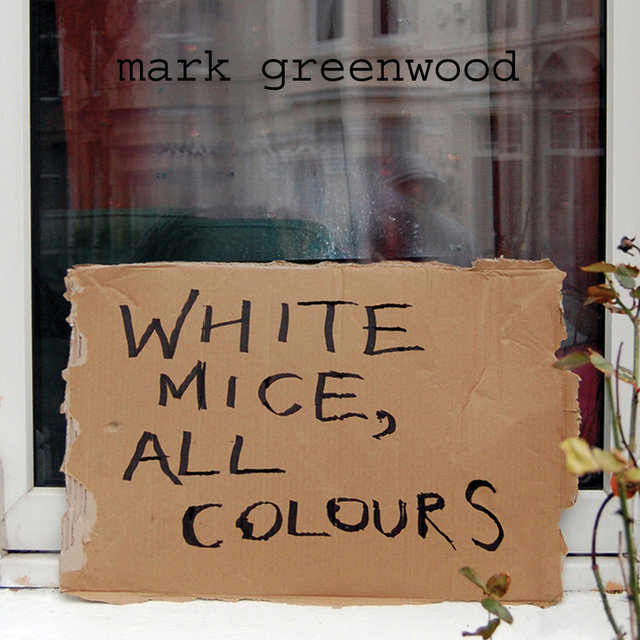 mark greenwood
WHITE
MICE,
ALL
COLOURS